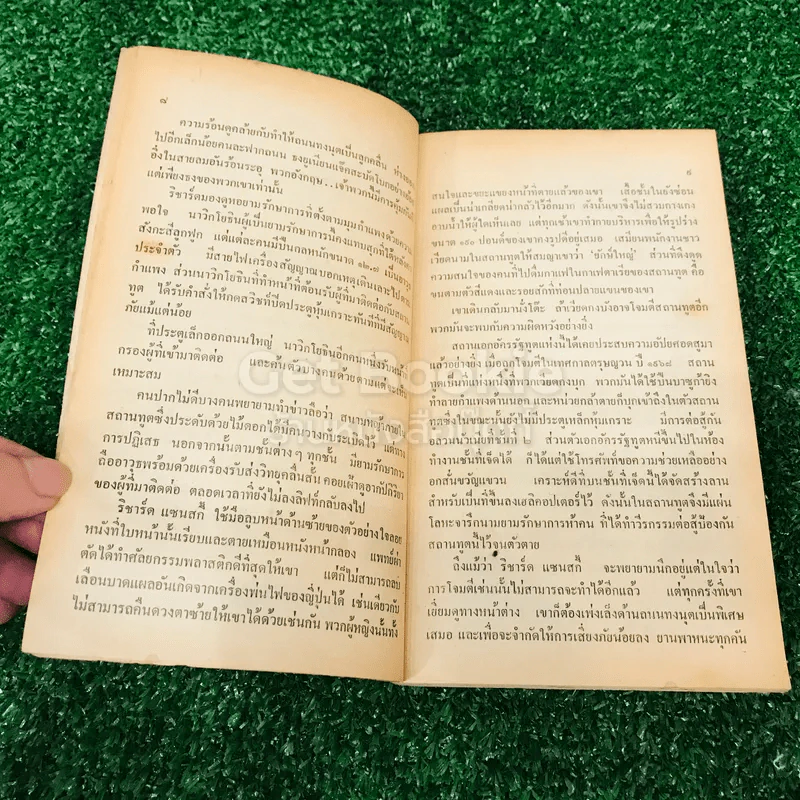 ๘
ความร้อนดูคล้ายกับทำให้ถนนทงนุตเป็นลูกคลื่น ห่างออก
ไปอีกเล็กน้อยคนละฟากถนน ธงยูเนียนแจ๊คสะบัดใบลออย่าง
อึ่งในสายลมอันร้อนระอุ พวกอังกฤษ..เจ้าพวกนี้มีการคุ้มกัน
แต่เพียงธงของพวกเขาเท่านั้น
ริชาร์ดมองดูหอยามรักษาการที่ตั้งตามมุมกำแพงด้วยความ
พอใจ นาวิกโยธินผู้เป็นยามรักษาการนี้คงแทบสุกที่ใต้หลังคา
สังกะสีลูกฟูก แต่แต่ละคนมีปืนกลหนักขนาด ๑๒.๗ เป็นอาวุธ
ประจำตัว มีสายไฟเครื่องสัญญาณบอกเหตุเดินเลาะไปตาม
กำแพง ส่วนนาวิกโยธินที่ทำหน้าที่ต้อนรับผู้ที่มาติดต่อกับสถาน
ทูต ได้รับคำสั่งให้กดสวิชที่ปิดประตูหุ้มเกราะทันทีที่มีสัญญาณ
ภัยแม้แต่น้อย
ที่ประตูเล็กออกถนนใหญ่ นาวิกโยธินอีกคนหนึ่งรับหน้าที่
กรองผู้ที่เข้ามาติดต่อ และค้นตัวบางคนด้วยตามแต่จะเห็น
เหมาะสม
คนปากไม่ดีบางคนพยายามทำข่าวลือว่า สนามหญ้าภายใน
สถานทูตซึ่งประดับด้วยไม้ดอกได้มีคนวางกับระเบิดไว้ แต่ทาง
การปฏิเสธ นอกจากนั้นตามชั้นต่างๆ ทุกชั้น มียามรักษาการ
ถืออาวุธพร้อมด้วยเครื่องรับส่งวิทยุคลื่นสั้น คอยเฝ้าดูอากัปกิริยา
ของผู้ที่มาติดต่อ ตลอดเวลาที่ยังไม่ลงลิฟท์กลับลงไป
ริชาร์ด แซนสกี้ ใช้มือลูบหน้าด้านซ้ายของตัวอย่างใจลอย
หนังที่ใบหน้านั้นเรียบและตายเหมือนหนังหน้ากลอง แพทย์ผ่า
ตัดได้ทำศัลยกรรมพลาสติกดีที่สุดให้เขา แต่ก็ไม่สามารถลบ
เลื่อนบาดแผลอันเกิดจากเครื่องพ่นไฟของญี่ปุ่นได้ เช่นเดียวกับ
ไม่สามารถคืนดวงตาซ้ายให้เขาได้ด้วยเช่นกัน พวกผู้หญิงนั้นทั้ง
๙
สนใจและขยะแขยงหน้าที่ตายแล้วของเขา เสื้อชั้นในยังซ่อน
แผลเป็นน่าเกลียดน่ากลัวไว้อีกมาก ดังนั้นเขาจึงไม่สวมกางเกง
อาบน้ำให้ผู้ใดเห็นเลย แต่ทุกเช้าเขาทำกายบริหารเพื่อให้รูปร่าง
ขนาด ๑๙๐ ปอนด์ของเขาคงรูปดีอยู่เสมอ เสมียนพนักงานชาว
เวียตนามในสถานทูตให้สมญาเขาว่า 'ยักษ์ใหญ่' ส่วนที่ดึงดูด
ความสนใจของคนที่ไปดื่มกาแฟในกาแฟตาเรียของสถานทูต คือ
ขนตามตัวสีแดงและรอยสักที่ท่อนปลายแขนของเขา
เขาเดินกลับมานั่งโต๊ะ ถ้าเวียดกงบังอาจโจมตีสถานทูตอีก
พวกมันจะพบกับความผิดหวังอย่างยิ่ง
สถานเอกอัครรัฐทูตแห่งนี้ได้เคยประสบความอัปยศอดสูมา
แล้วอย่างยิ่ง เมื่อถูกโจมตีในเทศกาลตรุษญวน ปี ๑๙๖๘ สถาน
ทูตเป็นที่แห่งหนึ่งที่พวกเวียดกงบุก พวกมันได้ใช้ปืนบาซูก้ายิง
ทำลายกำแพงด้านนอก และหน่วยกล้าตายก็บุกเข้าถึงในตัวสถาน
ทูตซึ่งในขณะนั้นยังไม่มีประตูเหล็กหุ้มเกราะ มีการต่อสู้กัน
อลวนวุ่นเนี่ยที่ชั้นที่ ๑ ส่วนตัวเอกอัครรัฐทูตหนีขึ้นไปในห้อง
ทำงานชั้นที่เจ็ดได้ ก็ได้แต่ใช้โทรศัพท์ขอความช่วยเหลืออย่าง
อกสั่นขวัญแขวน เคราะห์ดีที่บนชั้นที่เจ็ดนี้ได้จัดสร้างลาน
สำหรับเป็นที่ขึ้นลงเฮลิคอปเตอร์ไว้ ดังนั้นในสถานทูตจึงมีแผ่น
โลหะจารึกนามยามรักษาการห้าคน ที่ได้ทำวีรกรรมต่อสู้ป้องกัน
สถานทูตนี้ไว้จนตัวตาย
ถึงแม้ว่า ริชาร์ด แซนสกี้ จะพยายามนึกอยู่แต่ในใจว่า
การโจมตีเช่นนั้นไม่สามารถจะทำได้อีกแล้ว แต่ทุกครั้งที่เขา
เยี่ยมดูทางหน้าต่าง เขาก็ต้องเพ่งเล็งด้านถนนทงนุตเป็นพิเศษ
เสมอ และเพื่อจะจำกัดให้การเสี่ยงภัยน้อยลง ยานพาหนะทุกคัน